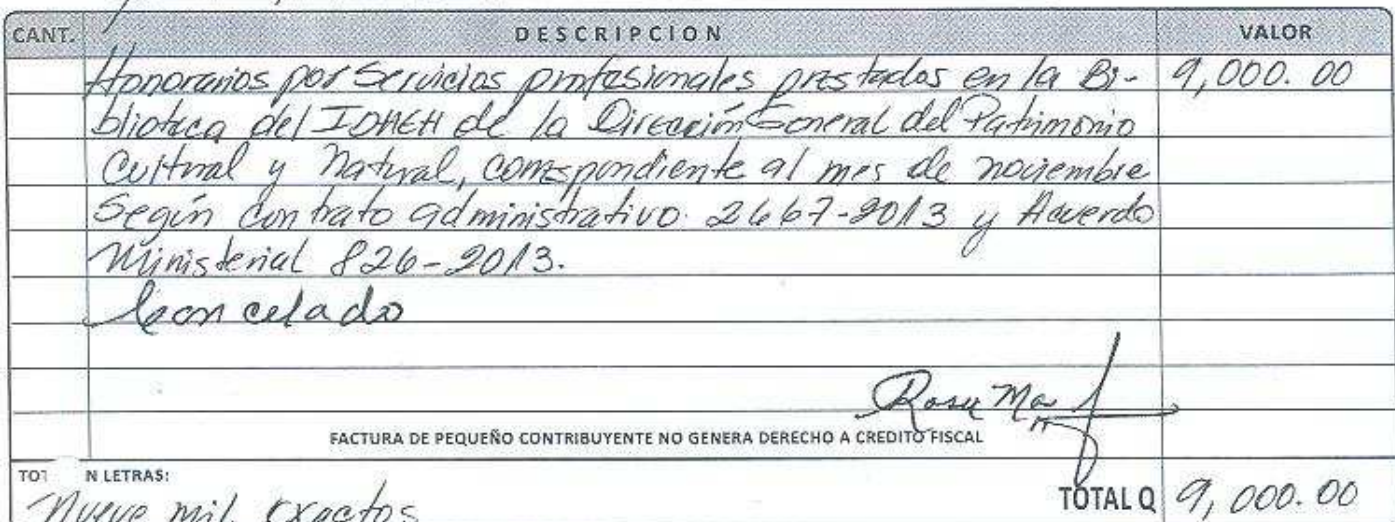 CANT. DESCRIPCION VALOR
Honorarios por Servicios profesionales prestados en la Bi- 9,000.00
blioteca del IDAEH de la Dirección General del Patrimonio
Cultural y Natural, correspondiente al mes de noviembre
Según contrato administrativo 2667-2013 y Acuerdo
Ministerial 826-2013.
Cancelado
Rosa Ma
FACTURA DE PEQUEÑO CONTRIBUYENTE NO GENERA DERECHO A CREDITO FISCAL
N LETRAS:
TOTAL Q 9,000.00
Nueve mil exactos